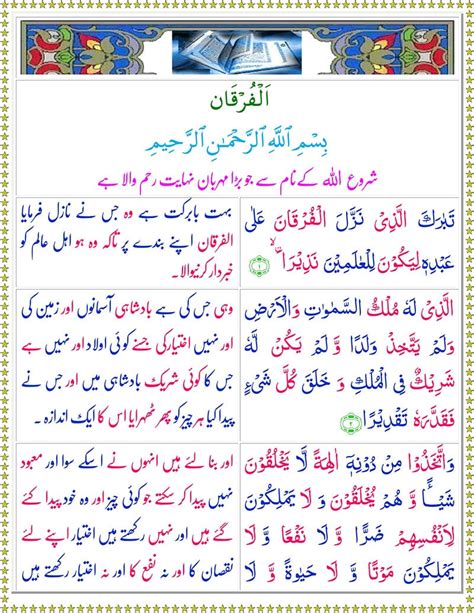 اَلْفُرْقَان
بِسْمِ اللّٰهِ الرَّحْمٰنِ الرَّحِيْمِ
شروع اللہ کے نام سے جو بڑا مہربان نہایت رحم والا ہے
تَبٰرَكَ الَّذِىْ نَزَّلَ الْفُرْقَانَ عَلٰى
عَبْدِهٖ لِيَكُوْنَ لِلْعٰلَمِيْنَ نَذِيْرَا ۙ ﴿۱﴾
بہت بابرکت ہے وہ جس نے نازل فرمایا
الفرقان اپنے بندے پر تاکہ وہ ہو اہل عالم کو
خبردار کرنیوالا۔
الَّذِىْ لَهٗ مُلْكُ السَّمٰوٰتِ وَالْاَرْضِ
وَلَمْ يَتَّخِذْ وَلَدًا وَّ لَمْ يَكُنْ لَّهٗ
شَرِيْكٌ فِى الْمُلْكِ وَ خَلَقَ كُلَّ شَىْءٍ
فَقَدَّرَهٗ تَقْدِيْرًا ﴿۲﴾
وہی جس کی ہے بادشاہی آسمانوں اور زمین کی
اور نہیں اختیار کی جسنے کوئی اولاد اور نہیں ہے
جس کا کوئی شریک بادشاہی میں اور جس نے
پیدا کیا ہر چیز کو پھر ٹھہرایا اس کا ایک اندازہ۔
وَاتَّخَذُوْا مِنْ دُوْنِهٖۤ اٰلِهَةً لَّا يَخْلُقُوْنَ
شَيْـًٔـا وَّ هُمْ يُخْلَقُوْنَ وَ لَا يَمْلِكُوْنَ
لِاَنْفُسِهِمْ ضَرًّا وَّ لَا نَفْعًا وَّ لَا
يَمْلِكُوْنَ مَوْتًا وَّ لَا حَيٰوةً وَّ لَا
اور بنا لئے ہیں انہوں نے اسکے سوا اور معبود
نہیں پیدا کر سکتے جو کوئی چیز اور وہ خود پیدا کئے
گئے ہیں اور نہیں رکھتے ہیں اختیار اپنے لئے
نقصان کا اور نہ نفع کا اور نہ اختیار رکھتے ہیں